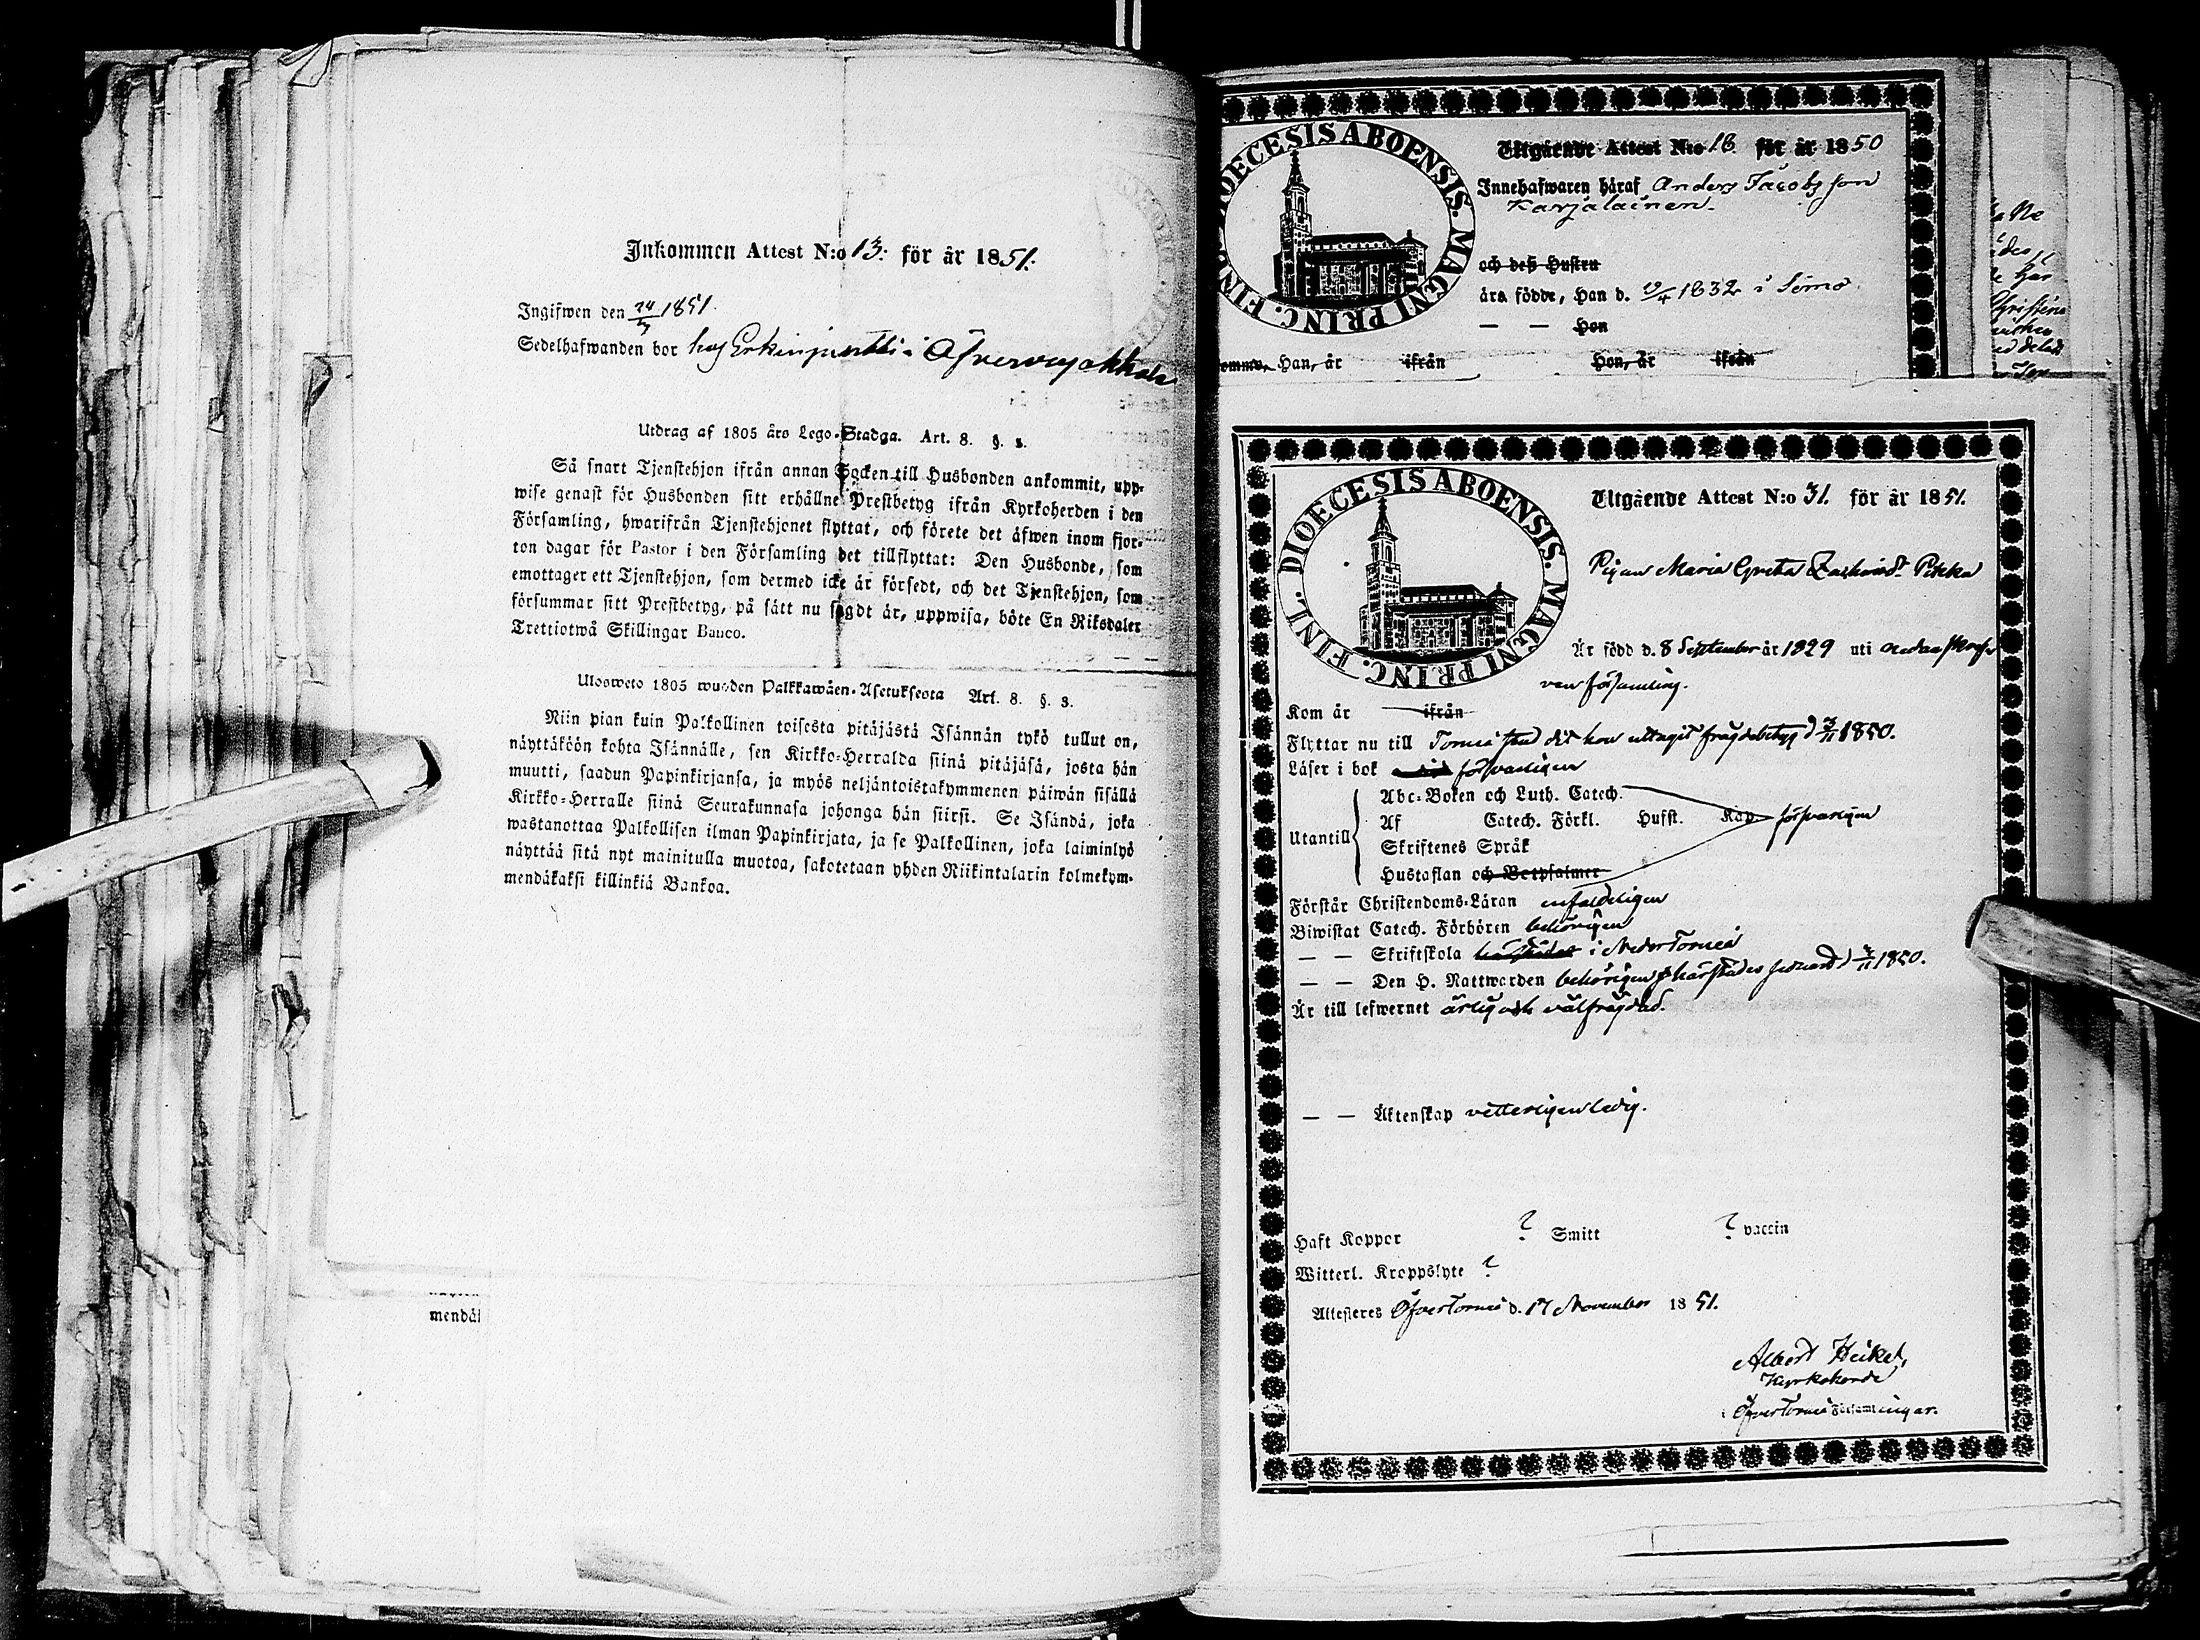 Inkommen Attest N:o 13. för år 1851.
Ingifwen den 24/5 1851.
Sedelhafwanden bor hos Erkinjuntti i Öfvervojakkala
Utdrag af 1805 års Lego-Stadga. Art. 8. §. 3.
Så snart Tjenstehjon ifrån annan Socken till Husbonden ankommit, upp-
wise genast för Husbonden sitt erhållne Prestbetyg ifrån Kyrkoherden i den
Församling, hwarifrån Tjenstehjonet flyttat, och förete det äfwen inom fjor-
ton dagar för Pastor i den Församling det tillflyttat: Den Husbonde, som
emottager ett Tjenstehjon, som dermed icke är försedt, och det Tjenstehjon, som
försummar sitt Prestbetyg, på sätt nu sagdt är, uppwisa, böte En Riksdaler
Trettiotwå Skillingar Banco.
Ulosweto 1805 wuoden Palkkawäen-Asetuksesta Art. 8. §. 3.
Niin pian kuin Palkollinen toisesta pitäjästä Isännän tykö tullut on,
näyttäköön kohta Isännälle, sen Kirkko-Herralda siinä pitäjäsä, josta hän
muutti, saadun Papinkirjansa, ja myös neljäntoistakymmenen päiwän sisällä
Kirkko-Herralle siinä Seurakunnasa johonga hän siirsi. Se Isändä, joka
wastanottaa Palkollisen ilman Papinkirjata, ja se Palkollinen, joka laiminlyö
näyttää sitä nyt mainitulla muotoa, sakotetaan yhden Riikintalarin kolmekym-
mendäkaksi killinkiä Bankoa.
mendäk
DIOECESIS ABOENSIS. MAGNI PRINC. FINL.
Utgående Attest N:o 16 för år 1850
Innehafwaren häraf Anders Jacobsson
Karjalainen.
och deß Hustru
ärs födde, Han d. 19/4 1832 i Simo.
— — Hon
ommo, Han, år ifrån Hon, år ifrån
DIOECESIS ABOENSIS. MAGNI PRINC. FINL.
Utgående Attest N:o 31. för år 1851.
Pigan Maria Greta Zachrisd:r Pekka
Är född d. 8 September år 1829 uti
församling.
Kom år ifrån
Flyttar nu till Torneå stad dit hon uttagit frägdebetyg d 3/11 1850.
Läser i bok försvarligen
Utantill
Abc-Boken och Luth. Catech.
Af Catech. Förkl. Hufst. Kap försvarligen
Skriftenes Språk
Hustaflan och Botpsalmer
Förstår Christendoms-Läran enfaldeligen
Biwistat Catech. Förhören behörigen
— — Skriftskola i NederTorneå
— — Den H. Nattwarden behörigen härstädes sednast d 3/11 1850.
Är till lefwernet ärlig och välfrägdad.
— — Äktenskap vetterligen ledig.
Haft Koppor ? Smitt ? vaccin
Witterl. Kroppslyte ?
Attesteres ÖfverTorneå d. 17 November 1851.
Albert Heikel,
Kyrkoherde
i ÖfverTorneå Församlingar.